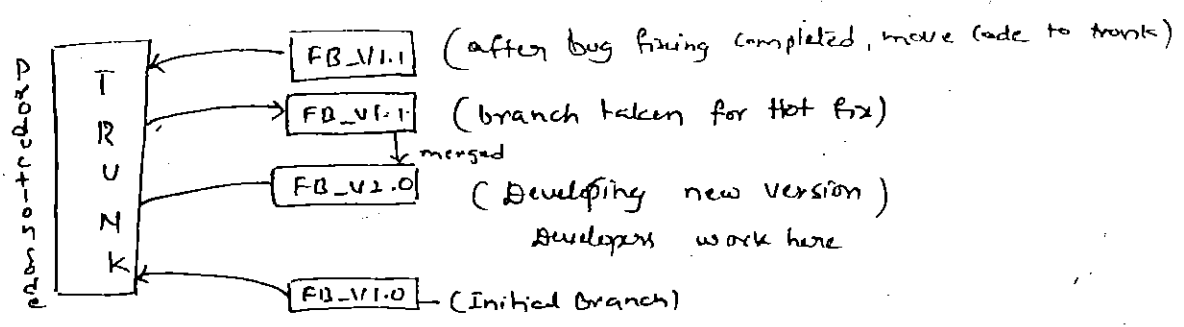 FB_V1.1 (after bug fixing completed, move code to trunk)
TRUNK
FB_V1.1 (branch taken for Hot fix)
merged
FB_V2.0 (Developing new version)
Developers work here
FB_V1.0 (Initial Branch)